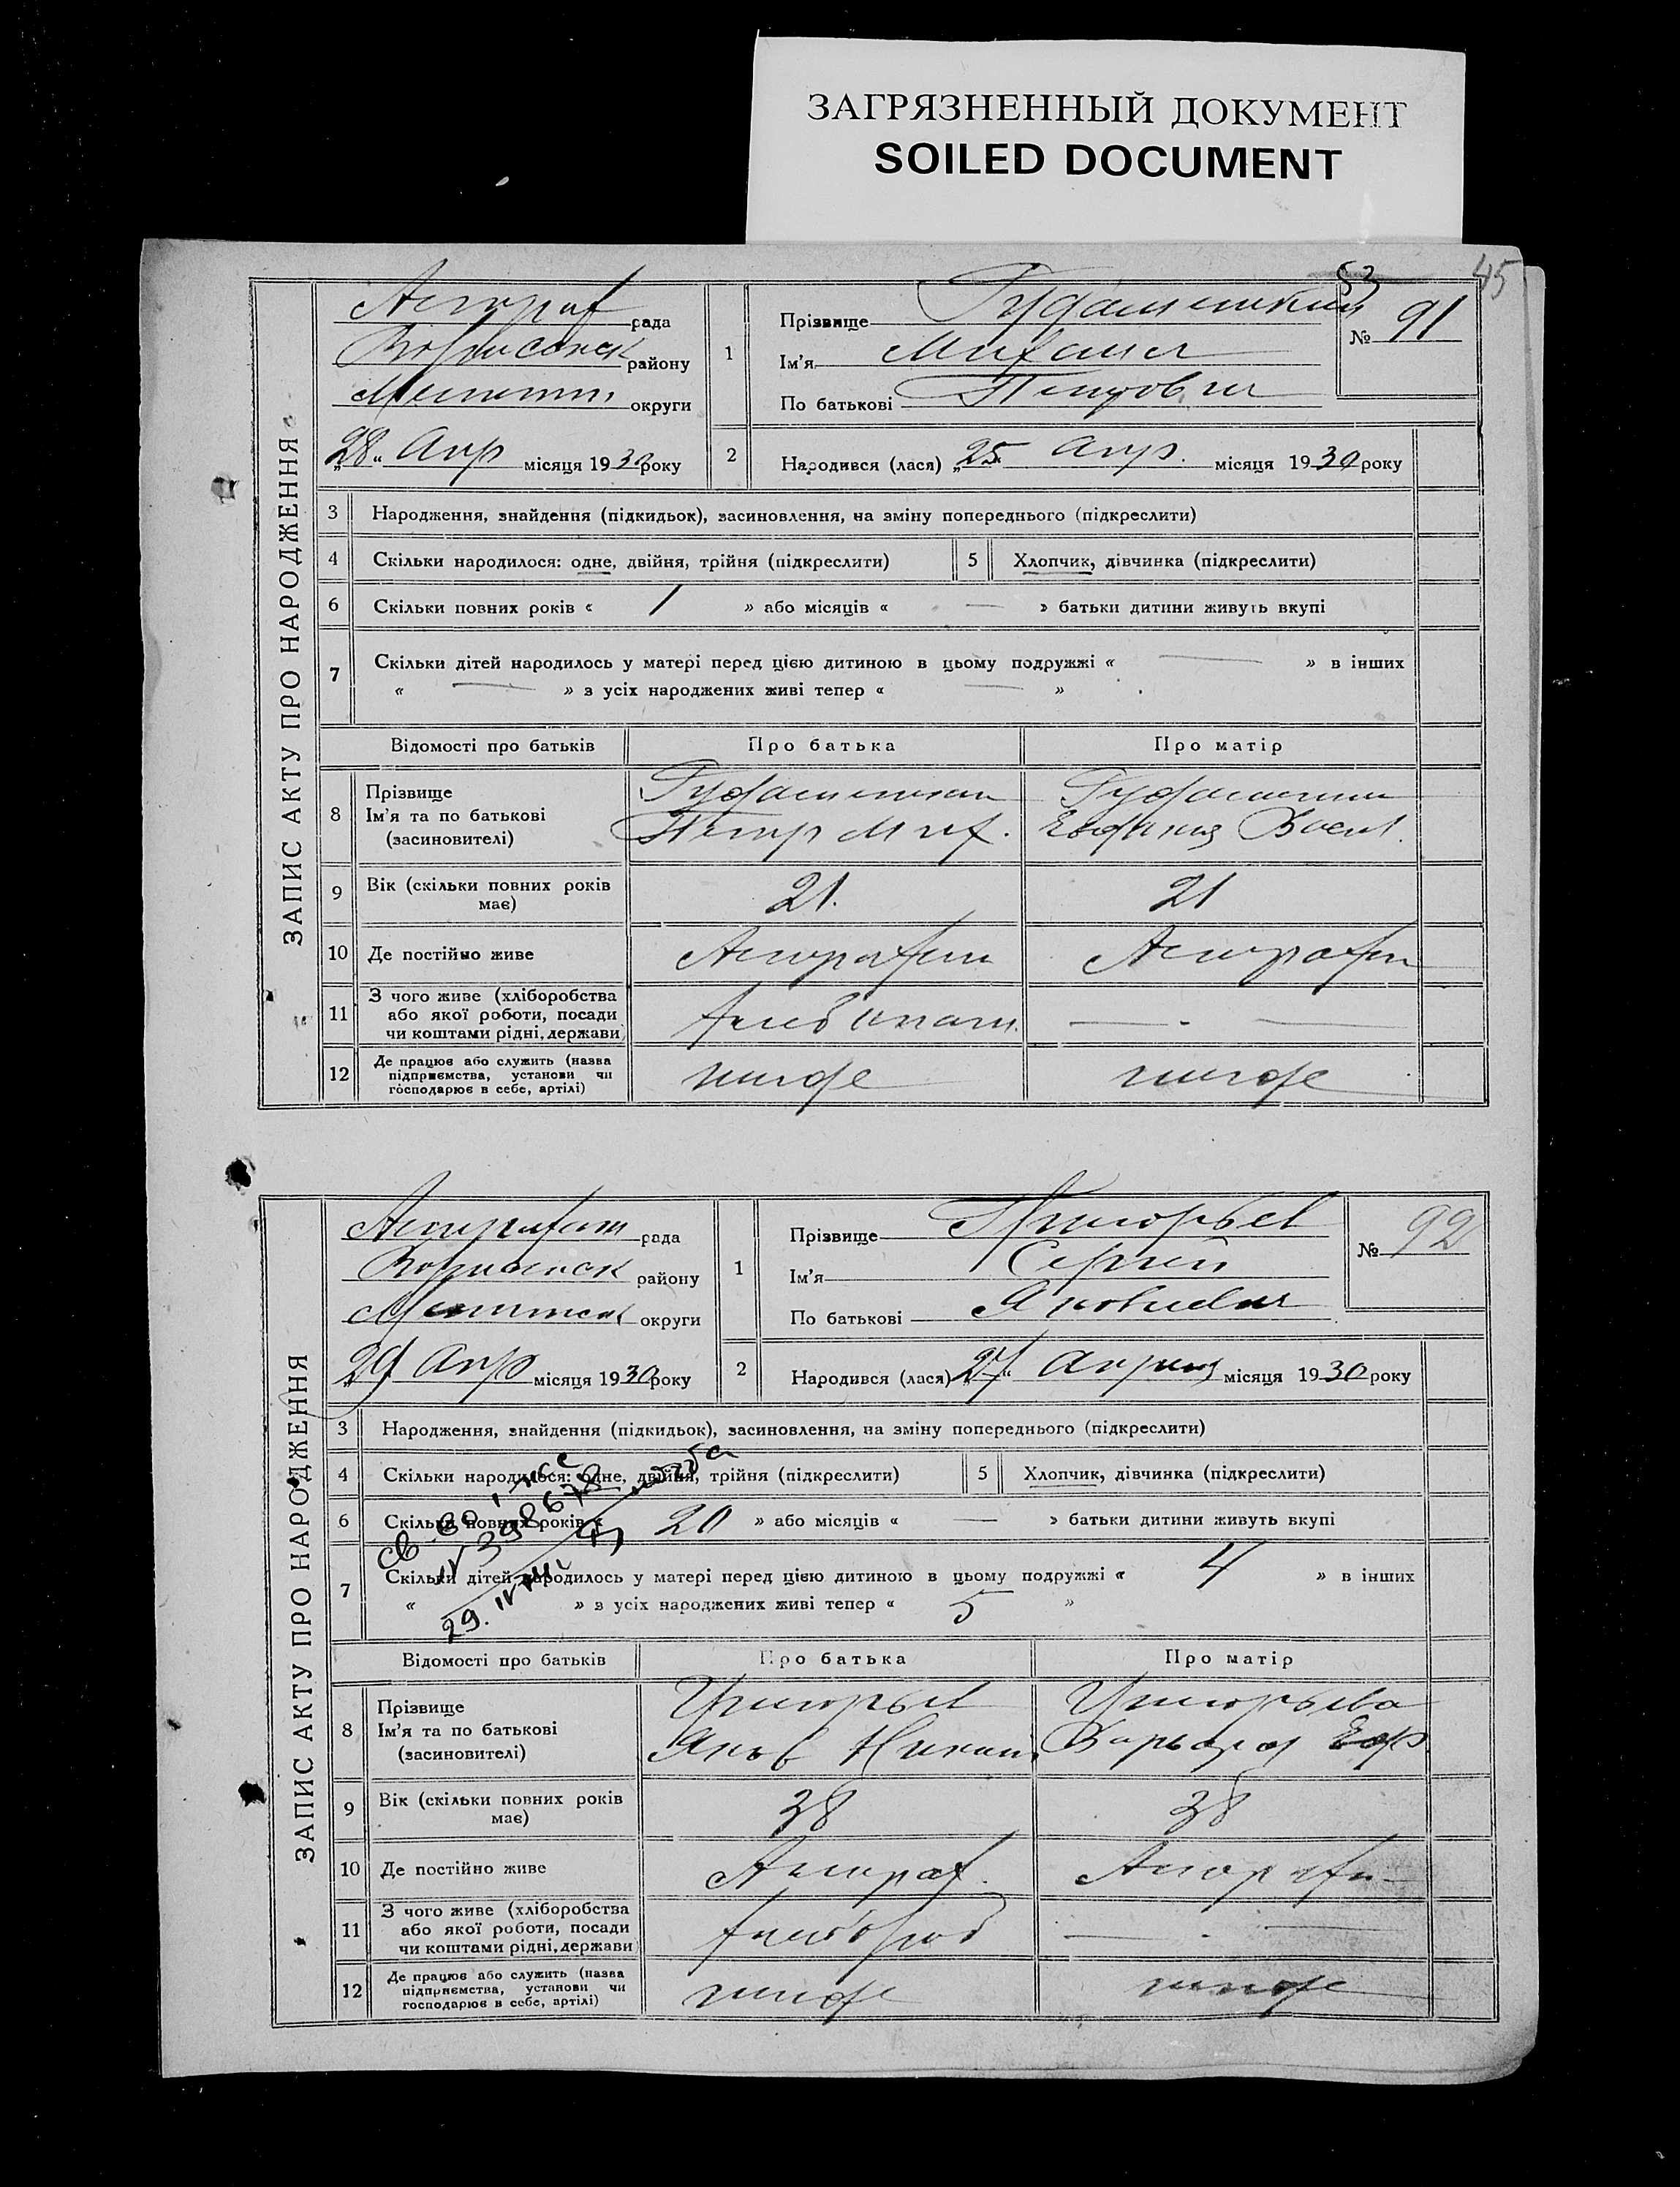 ЗАГРЯЗНЕННЫЙ ДОКУМЕНТ
SOILED DOCUMENT
45
53
ЗАПИС АКТУ ПРО НАРОДЖЕННЯ
рада
району
округи
„28“ Апр місяця 1930 року
1
Прізвище
Ім'я Михаил
По батькові Петрович
№ 91
2
Народився (лася) „25“ Апр. місяця 1930 року
3 Народження, знайдення (підкидьок), засиновлення, на зміну попереднього (підкреслити)
4 Скільки народилося: одне, двійня, трійня (підкреслити)
5 Хлопчик, дівчинка (підкреслити)
6 Скільки повних років « 1 » або місяців « — » батьки дитини живуть вкупі
7 Скільки дітей народилось у матері перед цією дитиною в цьому подружжі « — » в інших
« — » з усіх народжених живі тепер « — »
Відомості про батьків
Про батька
Про матір
8 Прізвище
Ім'я та по батькові
(засновителі)
Петр Мих.
Евдокия Васил.
9 Вік (скільки повних років
має)
21.
21
10 Де постійно живе
11 З чого живе (хліборобства
або якої роботи, посади
чи коштами рідні, держави)
— . —
12 Де працює або служить (назва
підприємства, установи чи
господарює в себе, артілі)
нигде
нигде
ЗАПИС АКТУ ПРО НАРОДЖЕННЯ
рада
району
округи
„29“ Апр місяця 1930 року
1
Прізвище Григорьев
Ім'я Сергей
По батькові Яковлевич
№ 92
2
Народився (лася) „27“ Апреля місяця 1930 року
3 Народження, знайдення (підкидьок), засиновлення, на зміну попереднього (підкреслити)
4 Скільки народилося: одне, двійня, трійня (підкреслити)
5 Хлопчик, дівчинка (підкреслити)
6 Скільки повних років « 20 » або місяців « — » батьки дитини живуть вкупі
7 Скільки дітей народилось у матері перед цією дитиною в цьому подружжі « 4 » в інших
« » з усіх народжених живі тепер « 5 »
Відомості про батьків
Про батька
Про матір
8 Прізвище
Ім'я та по батькові
(засиновителі)
Григорьев
Яков
Григорьева
Варвара Ефр
9 Вік (скільки повних років
має)
38
38
10 Де постійно живе
11 З чого живе (хліборобства
або якої роботи, посади
чи коштами рідні, держави)
хлебороб
— . —
12 Де працює або служить (назва
підприємства, установи чи
господарює в себе, артілі)
нигде
нигде